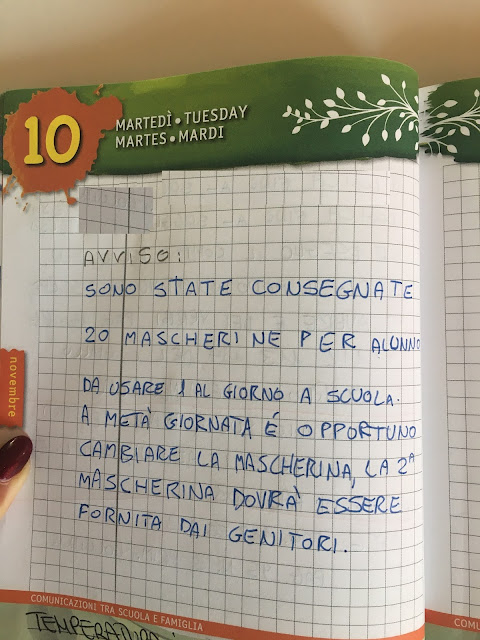 10
MARTEDÌ • TUESDAY
MARTES • MARDI
AVVISO:
SONO STATE CONSEGNATE
20 MASCHERINE PER ALUNNO
DA USARE 1 AL GIORNO A SCUOLA.
A METÀ GIORNATA É OPPORTUNO
CAMBIARE LA MASCHERINA, LA 2ᴬ
MASCHERINA DOVRÀ ESSERE
FORNITA DAI GENITORI.
novembre
COMUNICAZIONI TRA SCUOLA E FAMIGLIA
COMU
TEMPERATURA: